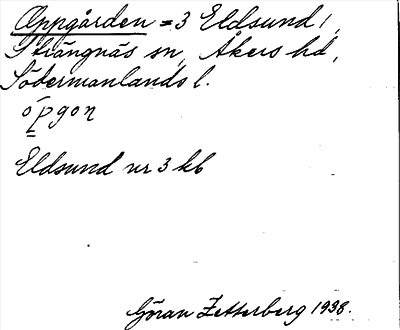 Oppgården = 3 Eldsund!,
Strängnäs sn, Åkers hd,
Södermanlands l.
ópgon
Eldsund nr 3 kb
Göran Zetterberg 1938.